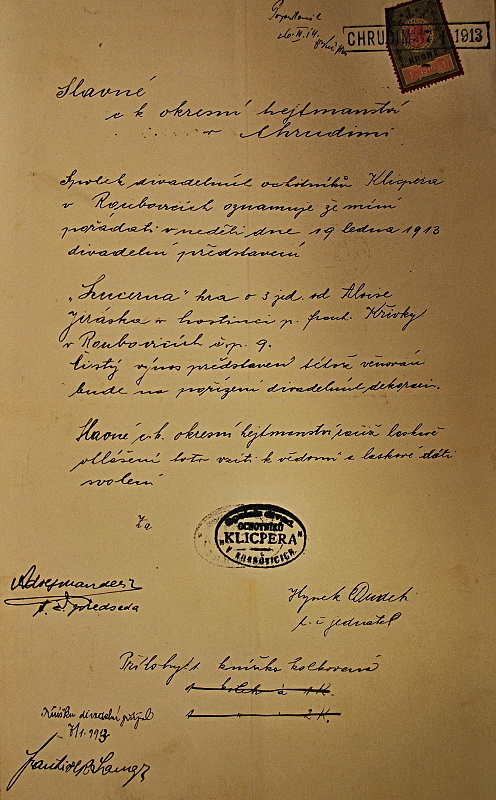 CHRUDIM 1913
KRONE
Slavné
c k okresní hejtmanství
v Chrudimi
Spolek divadelních ochotníků Klicpera
v Rosubovicích oznamuje že míní
pořádati v neděli dne 19 ledna 1913
divadelní představení
„Lucerna" hra o 3 jed. od Aloise
Jiráska v hostinci p. Frant. Křivky
v Roubovicích č.p. 9.
Čistý výnos představení tétož věnován
bude na pořízení divadelních dekorací.
Slavné c. k. okresní hejtmanství račiž laskavě
ohlášení toto vzíti k vědomí a laskavě dáti
svolení
Za
OCHOTNÍKŮ
„KLICPERA"
V ROSUBOVICÍCH.
t. č. předseda
Hynek Dudek
t. č. jednatel
Přílohy: 1 knížka kolkovaná
1 kolek à 1 K.
1 " " 2 K.
Knížku divadelní přijal
7/1. 1913